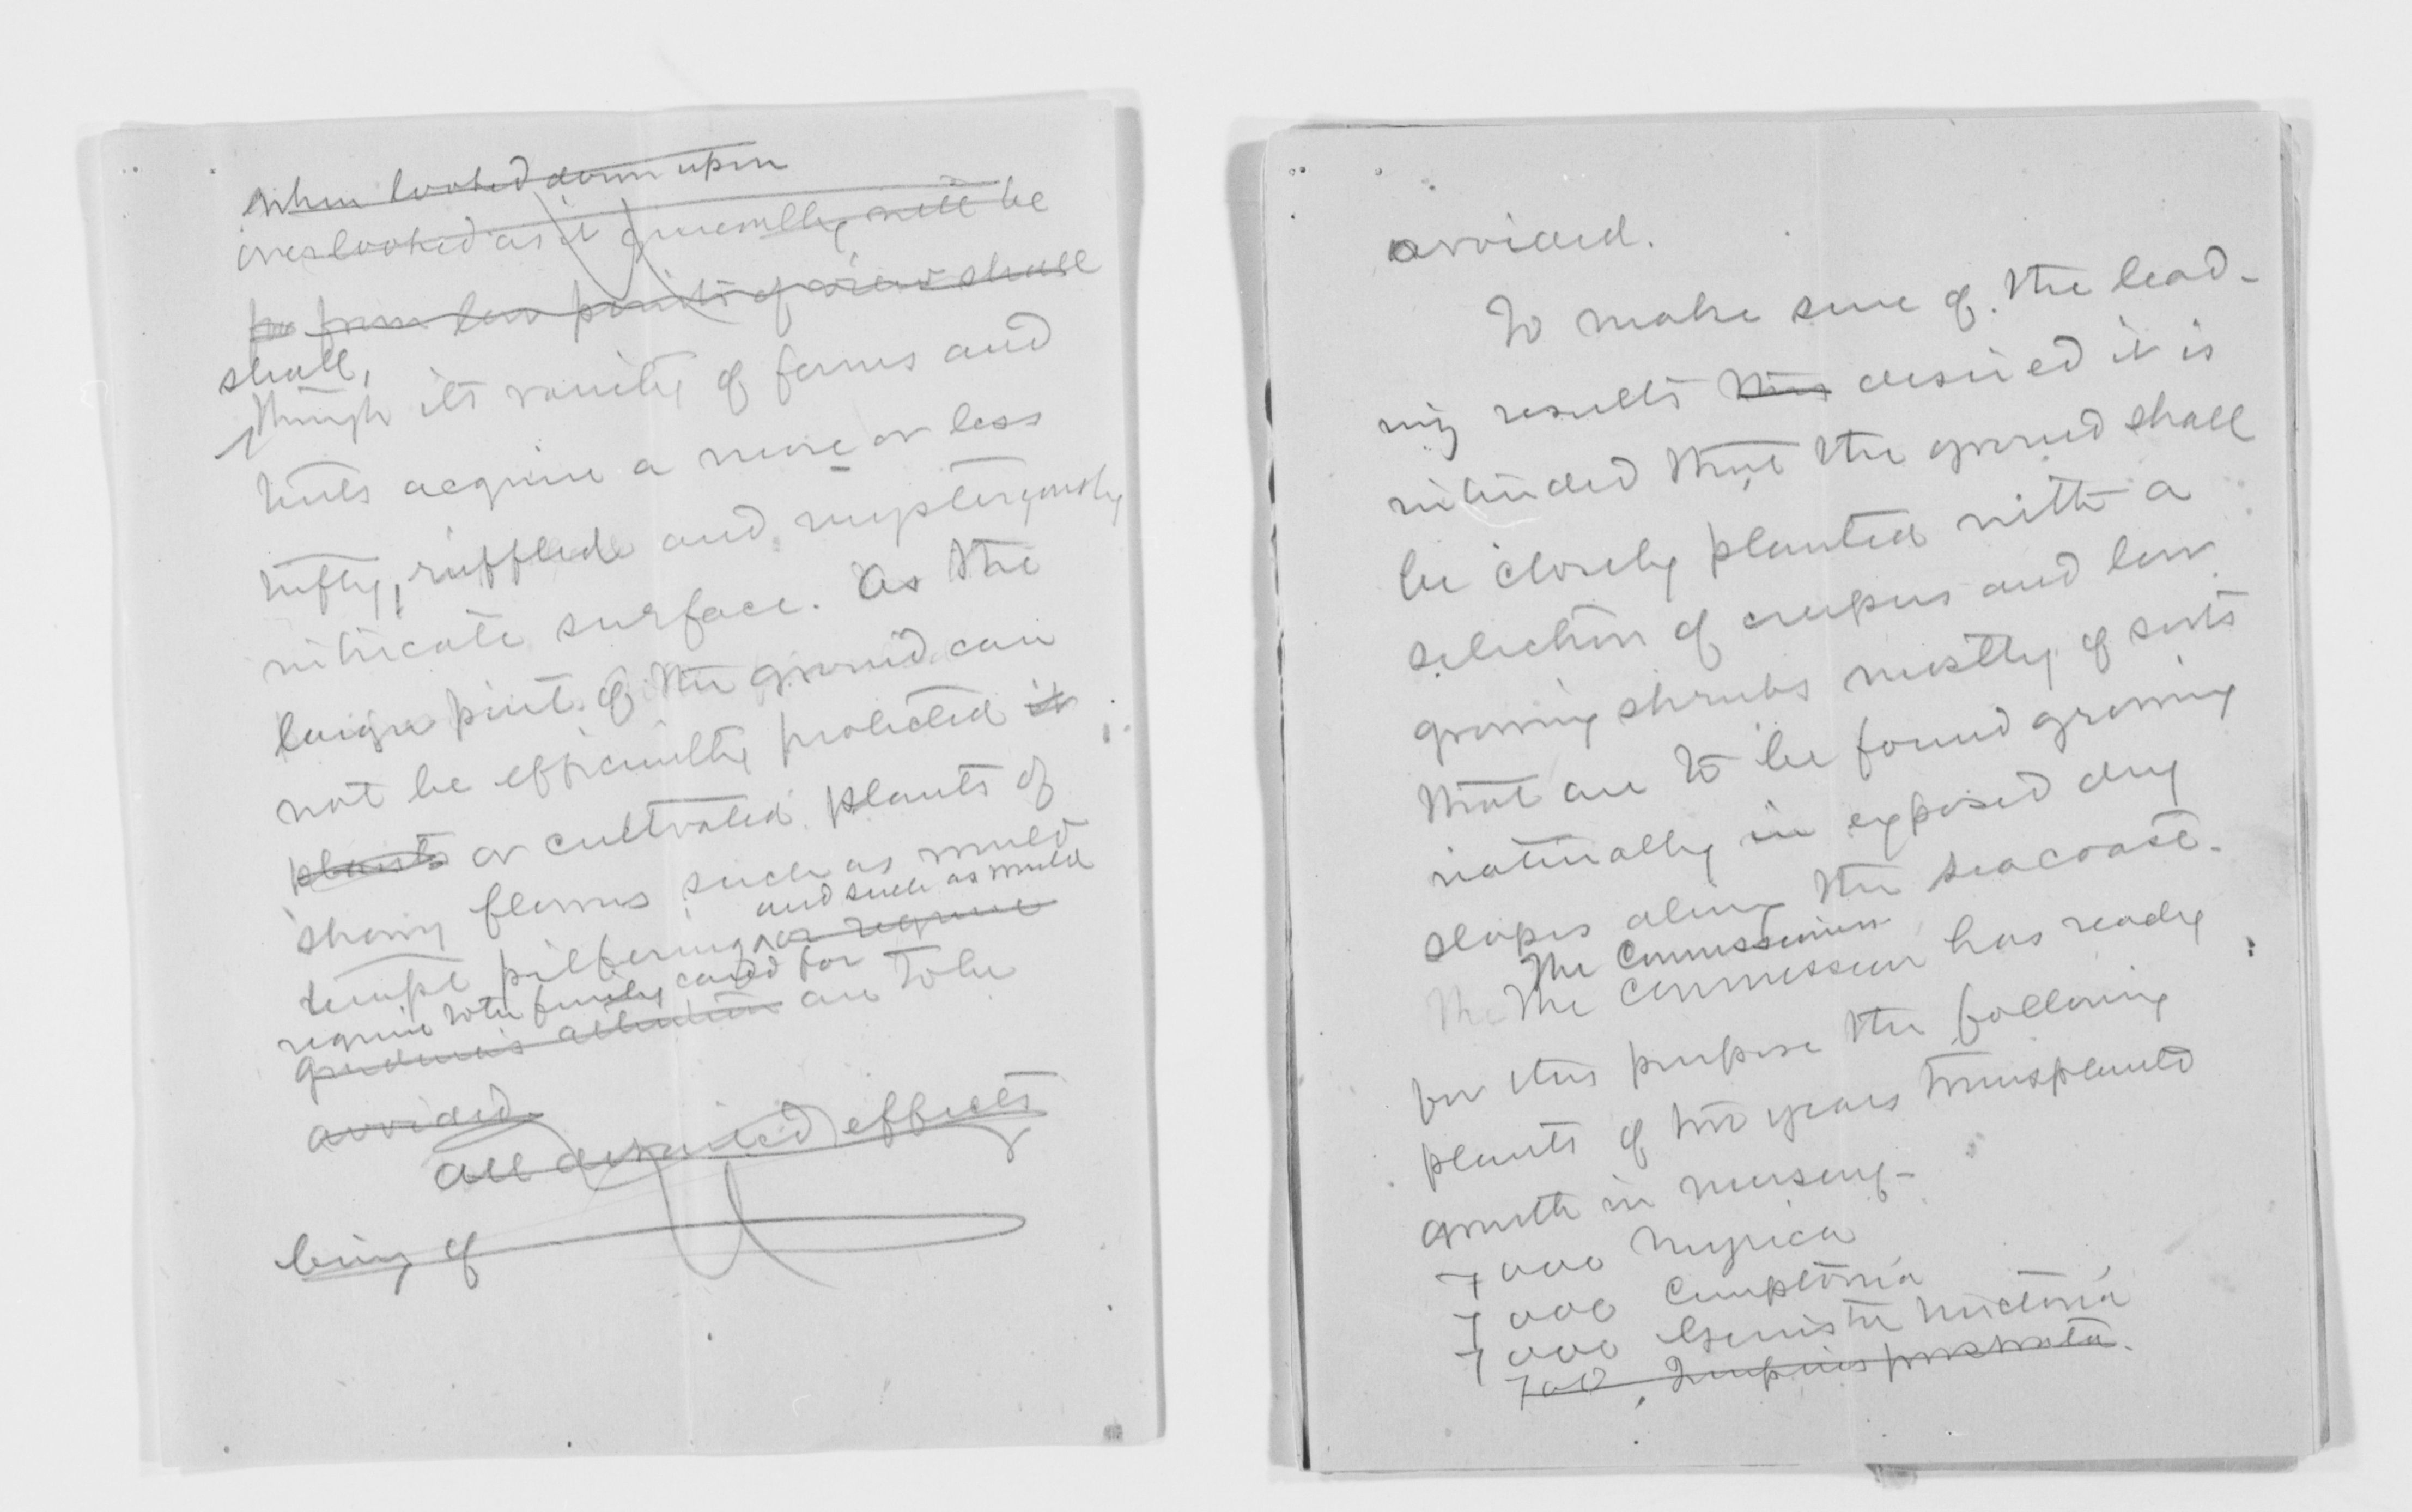 when looked down upon
overlooked as it generally will be
fro from low points of view shall
shall,
though its variety of forms and
tints acquire a more or less
tufty, ruffled and mysteriously
intricate surface. As the
larger part of the ground can
not be efficiently protected it
plants or cultivated plants of
showy flowers such as would
and such as would
tempt pilfering or require
require to be finely cared for
gardener's attention are to be
avoided
All detailed effects
being of
avoided.
To make sure of the lead-
ing results this desired it is
intended that the ground shall
be closely planted with a
selection of creepers and low
growing shrubs mostly of sorts
that are to be found growing
naturally in exposed dry
slopes along the seacoast.
The Commission
The The Commission has ready
for this purpose the following
plants of two years transplanted
growth in nursery-
7000 Myrica
7000 Comptonia
7000 Genista tinctoria
700 prostrata.